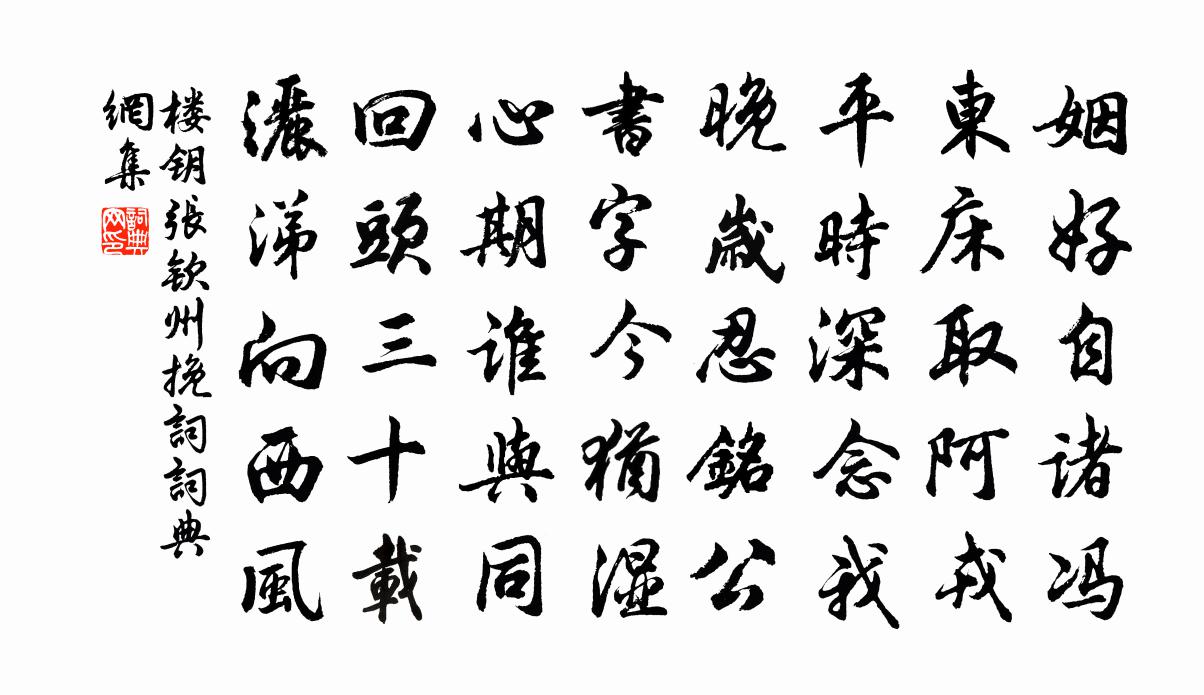 姻好自诸冯
東床取阿戎
平時深念我
晚歲忍銘公
書字今猶濕
心期誰與同
回頭三十載
灑涕向西風
楼钥張欽州挽詞詞典
網集
詞典
网印